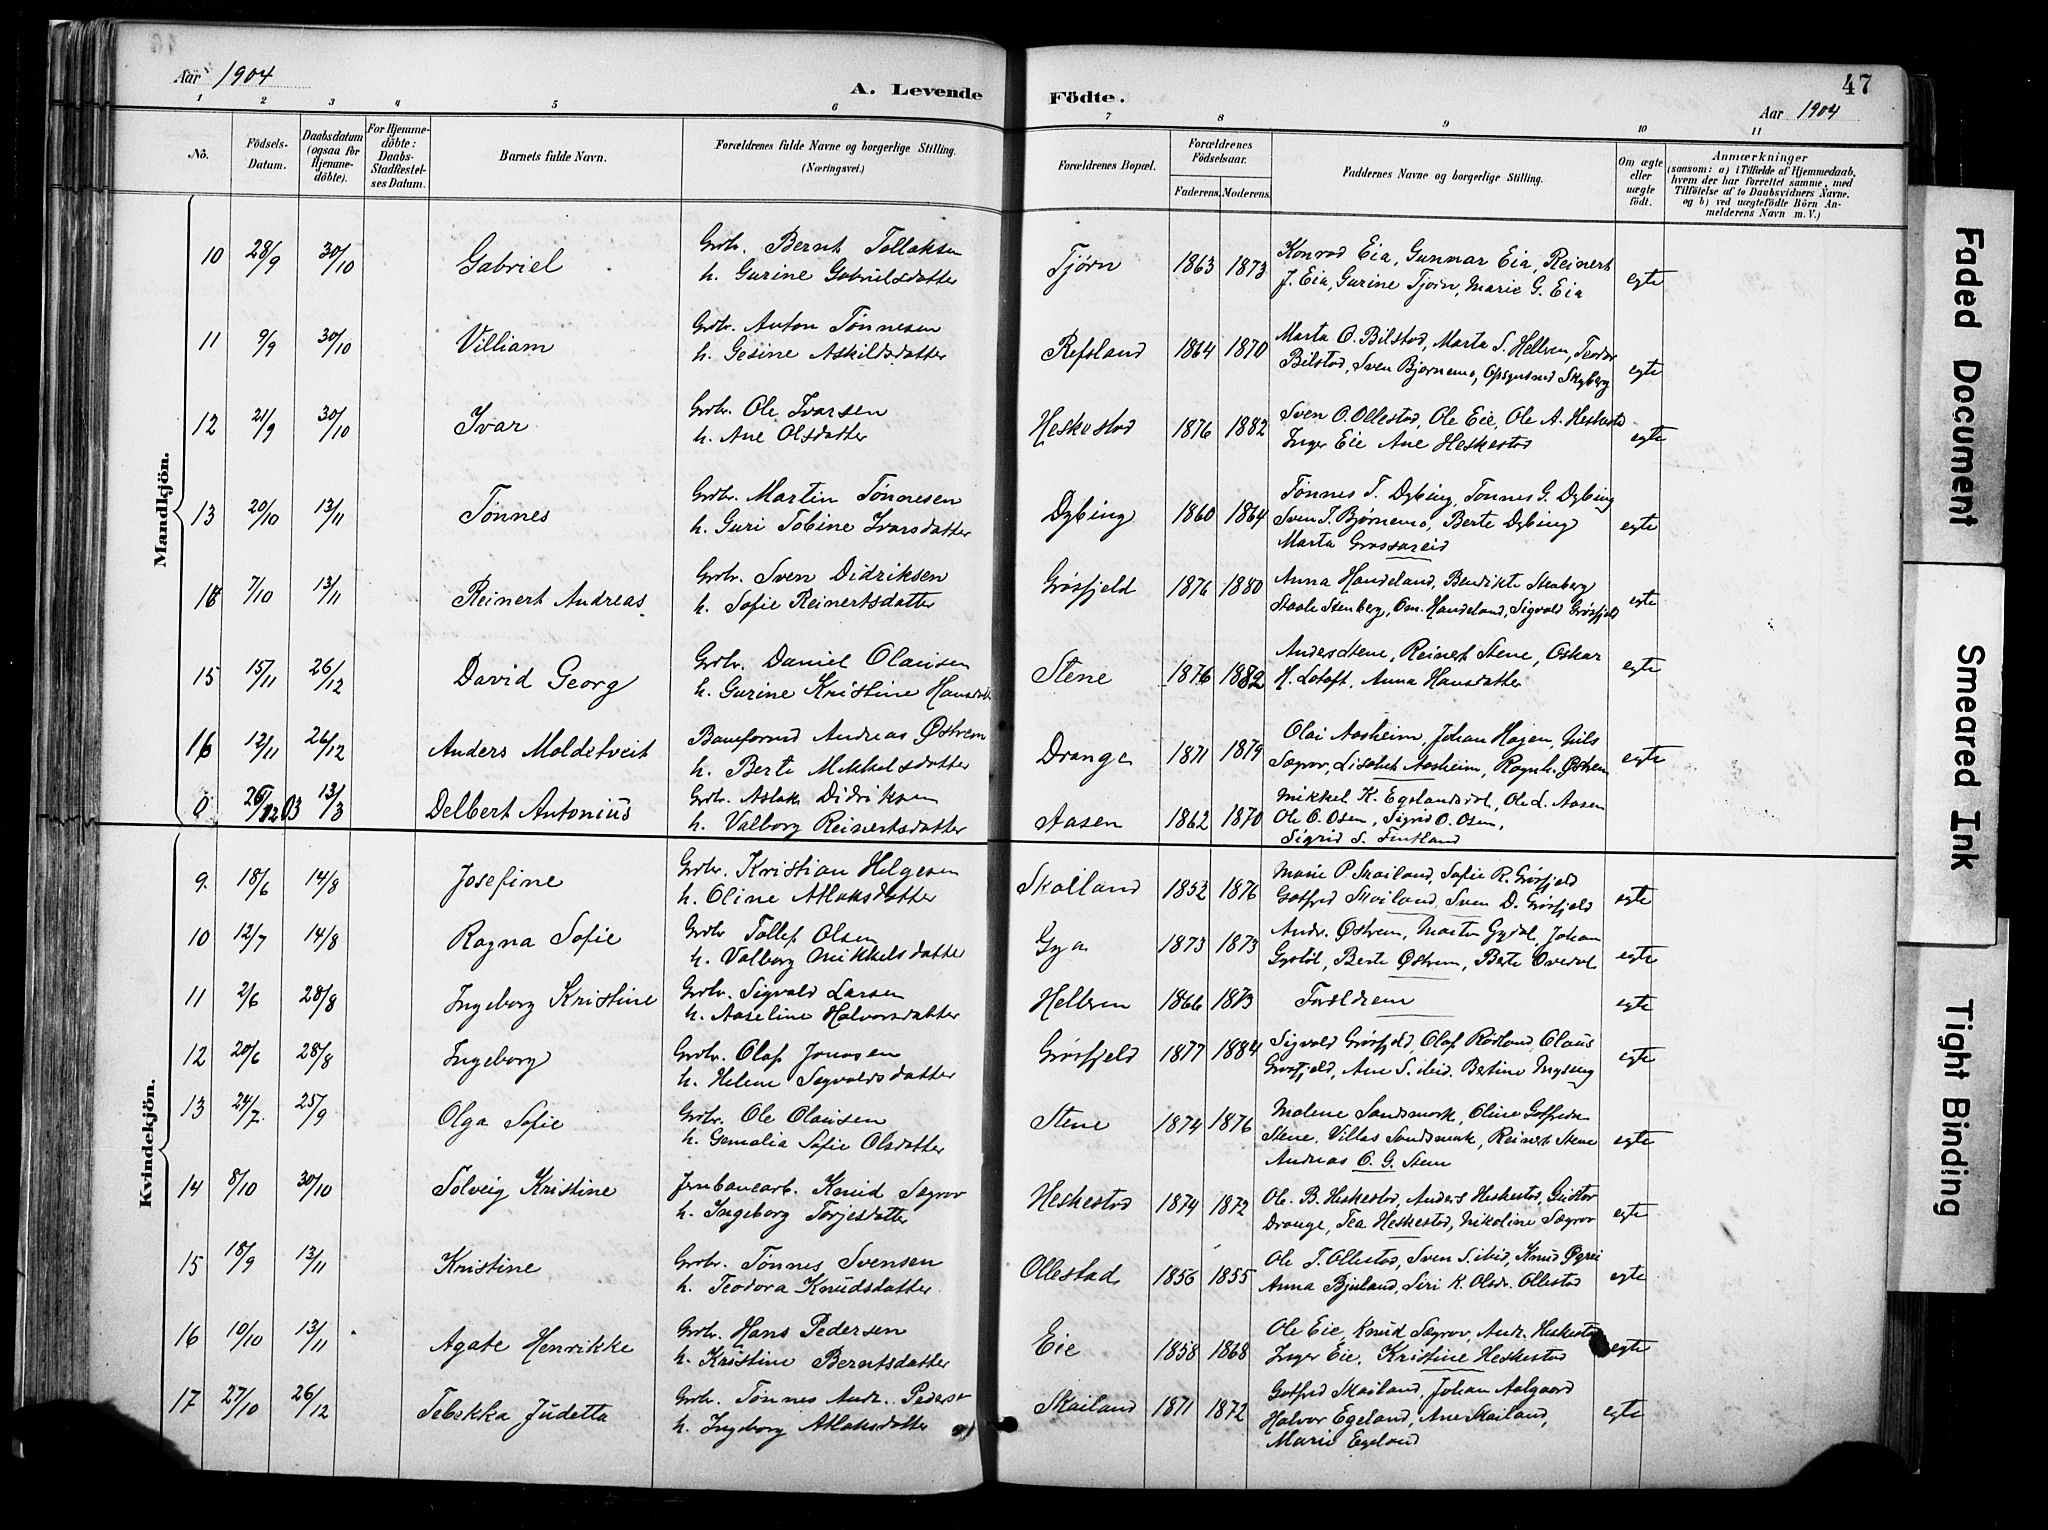 Aar 1904
A. Levende Födte.
47
Aar 1904
1 2 3 4 5 6 7 8 9 10 11
No.
Födsels-Datum.
Daabsdatum (ogsaa for Hjemme-döbte).
For Hjemme-döbte: Daabs-Stadfæstel-ses Datum.
Barnets fulde Navn.
Forældrenes fulde Navne og borgerlige Stilling.
(Næringsvei.)
Forældrenes Bopæl.
Forældrenes Födselsaar.
Faderens. Moderens.
Faddernes Navne og borgerlige Stilling.
Om ægte eller uægte födt.
Anmærkninger
(saasom: a) i Tilfælde af Hjemmedaab, hvem der har forrettet samme, med Tilföielse af to Daabsvidners Navne. og b) ved uægtefödte Börn An-melderens Navn m. V.)
Mandkjön.
10 28/9 30/10 Gabriel Grdbr. Bernt Tollaksen
h. Gurine Gabrielsdatter Tjørn 1863 1873 Konrad Eia, Gunnar Eia, Reinert
J. Eia, Gurine Tjørn, Marie G. Eia egte
11 9/9 30/10 Villiam Grdbr. Anton Tønnesen
h. Gesine Askildsdatter Refsland 1864 1870 Marta O. Bilstad, Marta S. Hellren, Teodor
Bilstad, Sven Bjørnemo, Skyberg egte
12 21/9 30/10 Ivar Grdbr. Ole Ivarsen
h. Ane Olsdatter Heskestad 1876 1882 Sven O. Ollestad, Ole Eie, Ole A. Heskestad
Inger Eie Ane Heskestad egte
13 20/10 13/11 Tønnes Grdbr. Martin Tønnesen
h. Guri Tobine Ivarsdatter Dybing 1860 1864 Tønnes T. Dybing, Tønnes G. Dybing
Sven T. Bjørnemo, Berte Dybing
Marta Grossareid egte
14 7/10 13/11 Reinert Andreas Grdbr. Sven Didriksen
h. Sofie Reinertsdatter Grøsfjeld 1876 1880 Anna Handeland, Benedikte Stenberg
Staale Stenberg, Om. Handeland, Sigvald Grøsfjeld egte
15 15/11 26/12 David Georg Grdbr. Daniel Olausen
h. Gurine Kristine Hansdtr Stene 1876 1882 Anders Stene, Reinert Stene, Oskar
H. Lotoft, Anna Hansdatter egte
16 12/11 26/12 Anders Moldetveit Baneformd Andreas Østrem
h. Berte Mikkelsdatter Drange 1871 1879 Olai Aasheim, Johan Hagen, Nils
Sægrov, Lisabet Aasheim, Ragnh. Østrem egte
0 26/12 03 13/3 Delbert Antonius Grdbr. Aslak Didriksen
h. Valborg Reinertsdatter Aasen 1862 1870 Mikkel K. Egelandsdal, Ole L. Aasen
Ole O. Osen, Sigrid O. Osen,
Sigrid S. Fintland
Kvindekjön.
9. 18/6 14/8 Josefine Grdbr. Kristian Helgesen
h. Oline Atlaksdatter Skailand 1852 1876 Marie P. Skailand, Sofie R. Grøsfjeld
Gotfred Skailand, Sven D. Grøsfjeld egte
10 12/7 14/8 Ragna Sofie Grdbr Tollef Olsen
h. Valborg Mikkelsdatter Gya 1873 1873 Andr. Østrem, Martin Gydal, Johan
Gystøl, Berte Østrem, Berte Overdal egte
11 2/6 28/8 Ingeborg Kristine Grdbr. Sigvald Larsen
h. Aaseline Halvorsdatter Hellren 1866 1873 Foreldrene egte
12 20/6 28/8 Ingeborg Grdbr. Olaf Jonasen
h. Helene Sigvaldsdatter Grøsfjeld 1877 1884 Sigvald Grøsfjeld, Olaf Rødland, Olaus
Grøsfjeld, Ane S. ibid. Bertine Mysing egte
13 24/7. 25/9 Olga Sofie Grdbr. Ole Olausen
h. Gamalia Sofie Olsdatter Stene 1874 1876 Malene Sandsmark, Oline Gotfreda
Stene, Villas Sandsmark, Reinert Stene
Andreas O. G. Stene egte
14 8/10 30/10 Solveig Kristine Jernbanearb. Knud Sægrov
h. Ingeborg Torjesdatter Heskestad 1874 1872 Ole B. Heskestad, Anders Heskestad, Gustav
Drange, Tea Heskestad, Nikoline Sægrov egte
15 18/9 13/11 Kristine Grdbr. Tønnes Svensen
h. Teodora Knudsdatter Ollestad 1856 1855 Ole T. Ollestad, Sven S. ibid, Knud Øgrei
Anna Bjuland, Siri K. Olsdr. Ollestad egte
16 10/10 13/11 Agate Henrikke Grdbr. Hans Pedersen
h. Kristine Berntsdatter Eie 1858 1868 Ole Eie, Knud Sægrov, Andr. Heskestad
Inger Eie, Kristine Heskestad egte
17 27/10 26/12 Tebekka Judetta Grdbr. Tønnes Andr. Peders.
h. Ingeborg Atlaksdatter Skailand 1871 1872 Gotfred Skailand, Johan Aalgaard
Halvor Egeland, Ane Skailand,
Marie Egeland egte
Faded Document
Smeared Ink
Tight Binding